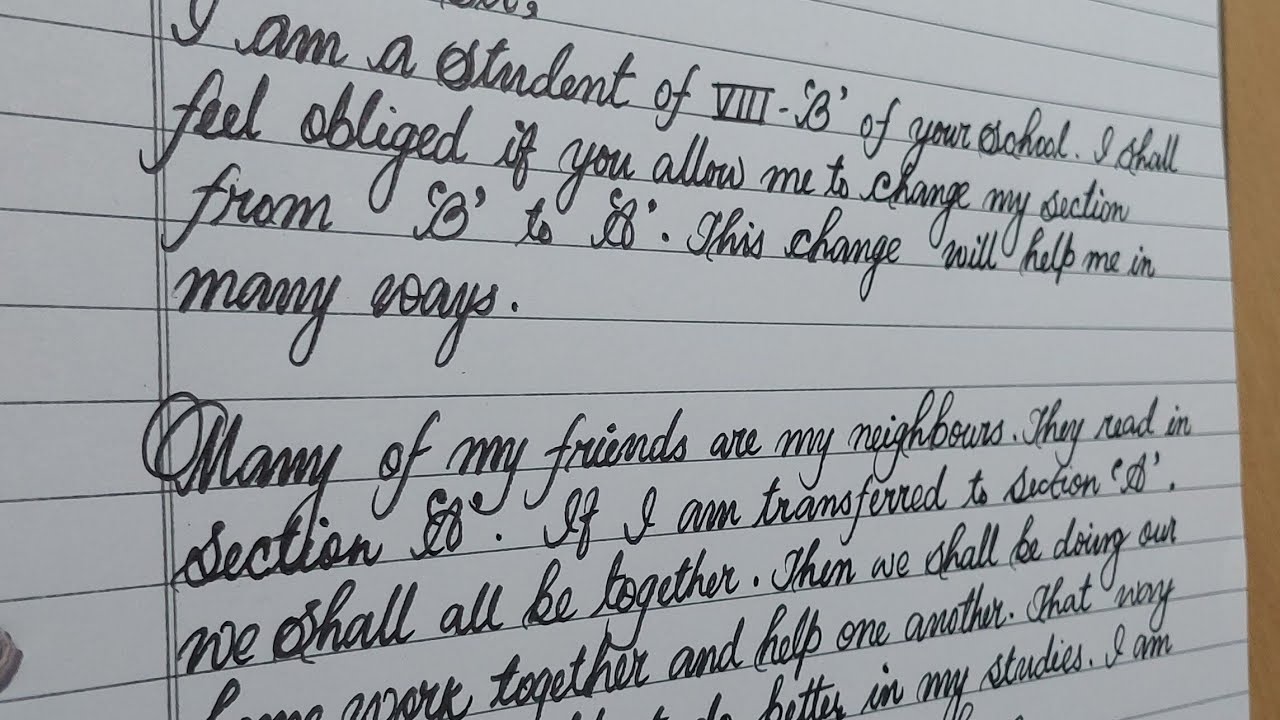 I am a student of VIII-'B' of your school. I shall
feel obliged if you allow me to change my section
from 'B' to 'A'. This change will help me in
many ways.
Many of my friends are my neighbours. They read in
section 'A'. If I am transferred to section 'A'.
we shall all be together. Then we shall be doing our
home work together and help one another. That way
to do better in my studies. I am